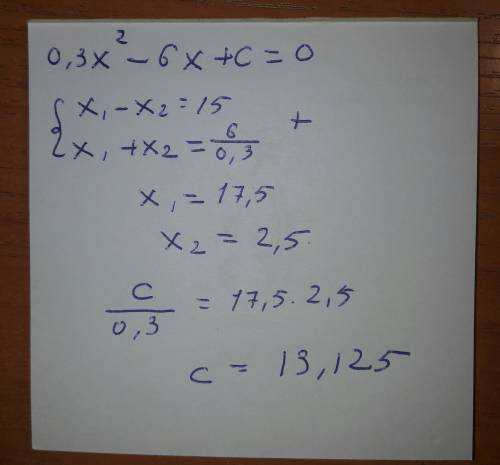 0,3x² - 6x + c = 0
{ x₁ - x₂ = 15
x₁ + x₂ = 6/0,3 +
x₁ = 17,5
x₂ = 2,5.
c/0,3 = 17,5 · 2,5
c = 13,125